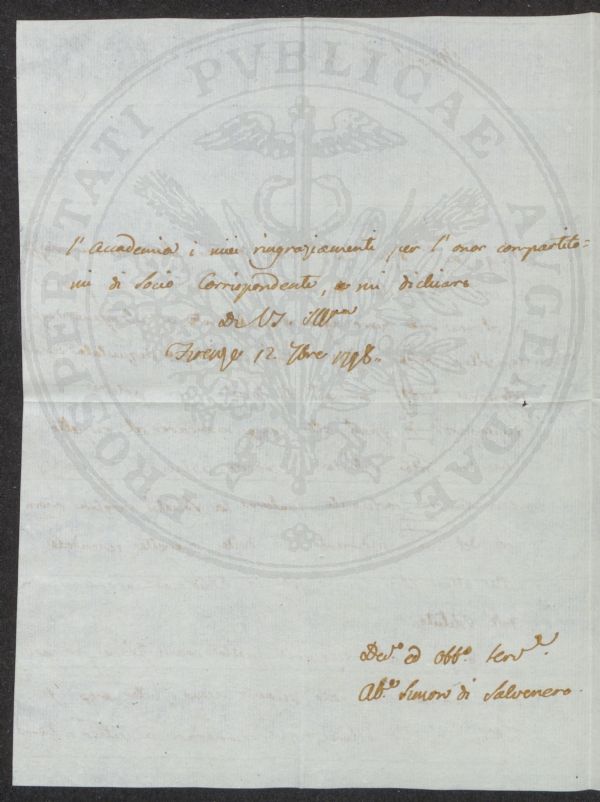 PROSPERITATI PVBLICAE AVGENDAE
l'Accademia i miei ringraziamenti per l'onor compartito=
mi di Socio Corrispondente, e mi dichiaro
Di V.S. Ill.ma
Firenze 12. 7bre 1798.
Dev.o ed Obb.o Serv.e
Ab.e Simone di Salvenero.